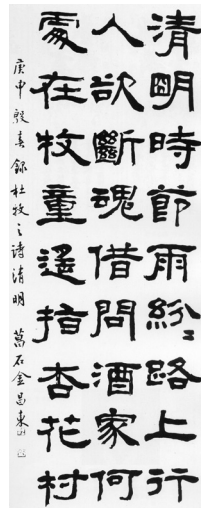 清明時節雨紛〻路上行
人欲斷魂借問酒家何
處在牧童遙指杏花村
庚申殷春錄杜牧之詩清明 菖石金昌東